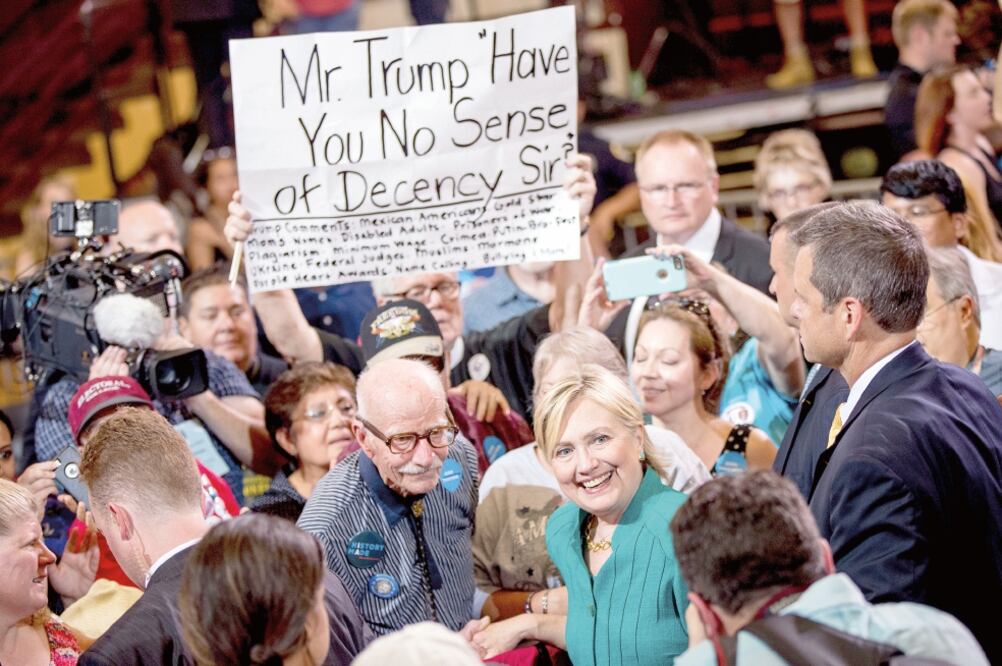 Mr. Trump "Have
You No Sense
of Decency Sir?"
Trump Comments: Mexican Americans Gold Star
Moms Women Disabled Adults: Prisoners of War
Plagiarism: Minimum Wage: Crimea Putin Bros First
Ukraine Federal Judges: Muslims Mormons
Purple Hearts Awards: Name Calling Bullying & More!
HISTORY
MADE